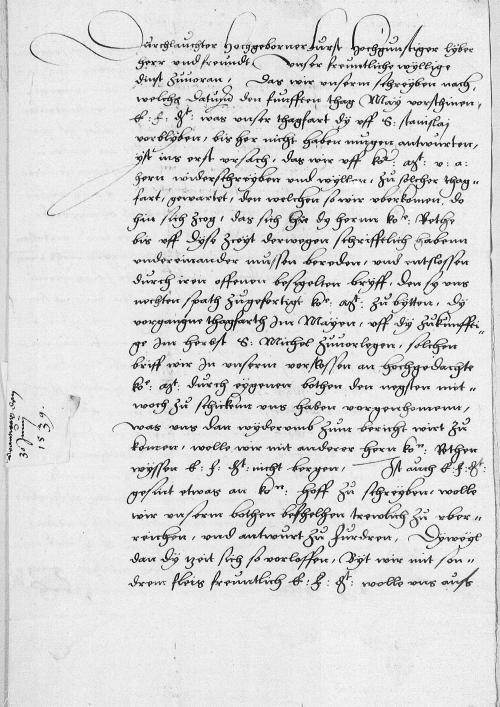 Durchlauchter Hochgeborner Furst Hochgunstiger lyber
herr und freundt Unser freuntliche wyllige
dinst zuuoran, Das wir unserm schreyben nach,
welchs datum den funfften thag May vorschinen,
E: F: Gt: was unser thagfart dy uff S: Stanislaj
vorblyben, bis her nicht haben mugen antwurten,
yst ins erst ursach, das wir uff ko: Mt:
hern widerschreyben und wyllen, zu solcher thag-
fart, gewartet, den welchen so wir uberkomen, do
hin sich zcog, das sich dy herrn ko: Rethe
bis uff dyse zceyt derwegen schrifftlich habenn
undereinander mussen bereden, und entslossen
durch iren offenen besigelten bryff, den sy uns
nechten spath zugefertigt ko: Mt: zu bytten, dy
vorgangne thagfarth Im Mayen, uff dy zukunffti-
ge Im herbst S: Michel zuuorlegen, solchen
briff wir In unserm vorslossen an hochgedachte
ko: Mt: durch eygenen bothen den negsten mit-
woch zu schicken uns haben vorgenhomenn,
was uns dan wyderumb zum bericht wirt zu
komen, wolle wir mit anderer hern ko: Rethen
wyssen E: F: Gt: nicht bergen, Ist auch E: F: Gt:
gesint etwas an ko: hoff zu schreyben, wolle
wir unserm bothen befhelhen trewlich zu uber-
reichen, und antwurt zu furdren, Dyweyl
dan dy zceit sich so vorloffen, Byt wir mit son-
drem fleis freuntlich E: F: Gt: wolle uns auffs
1536